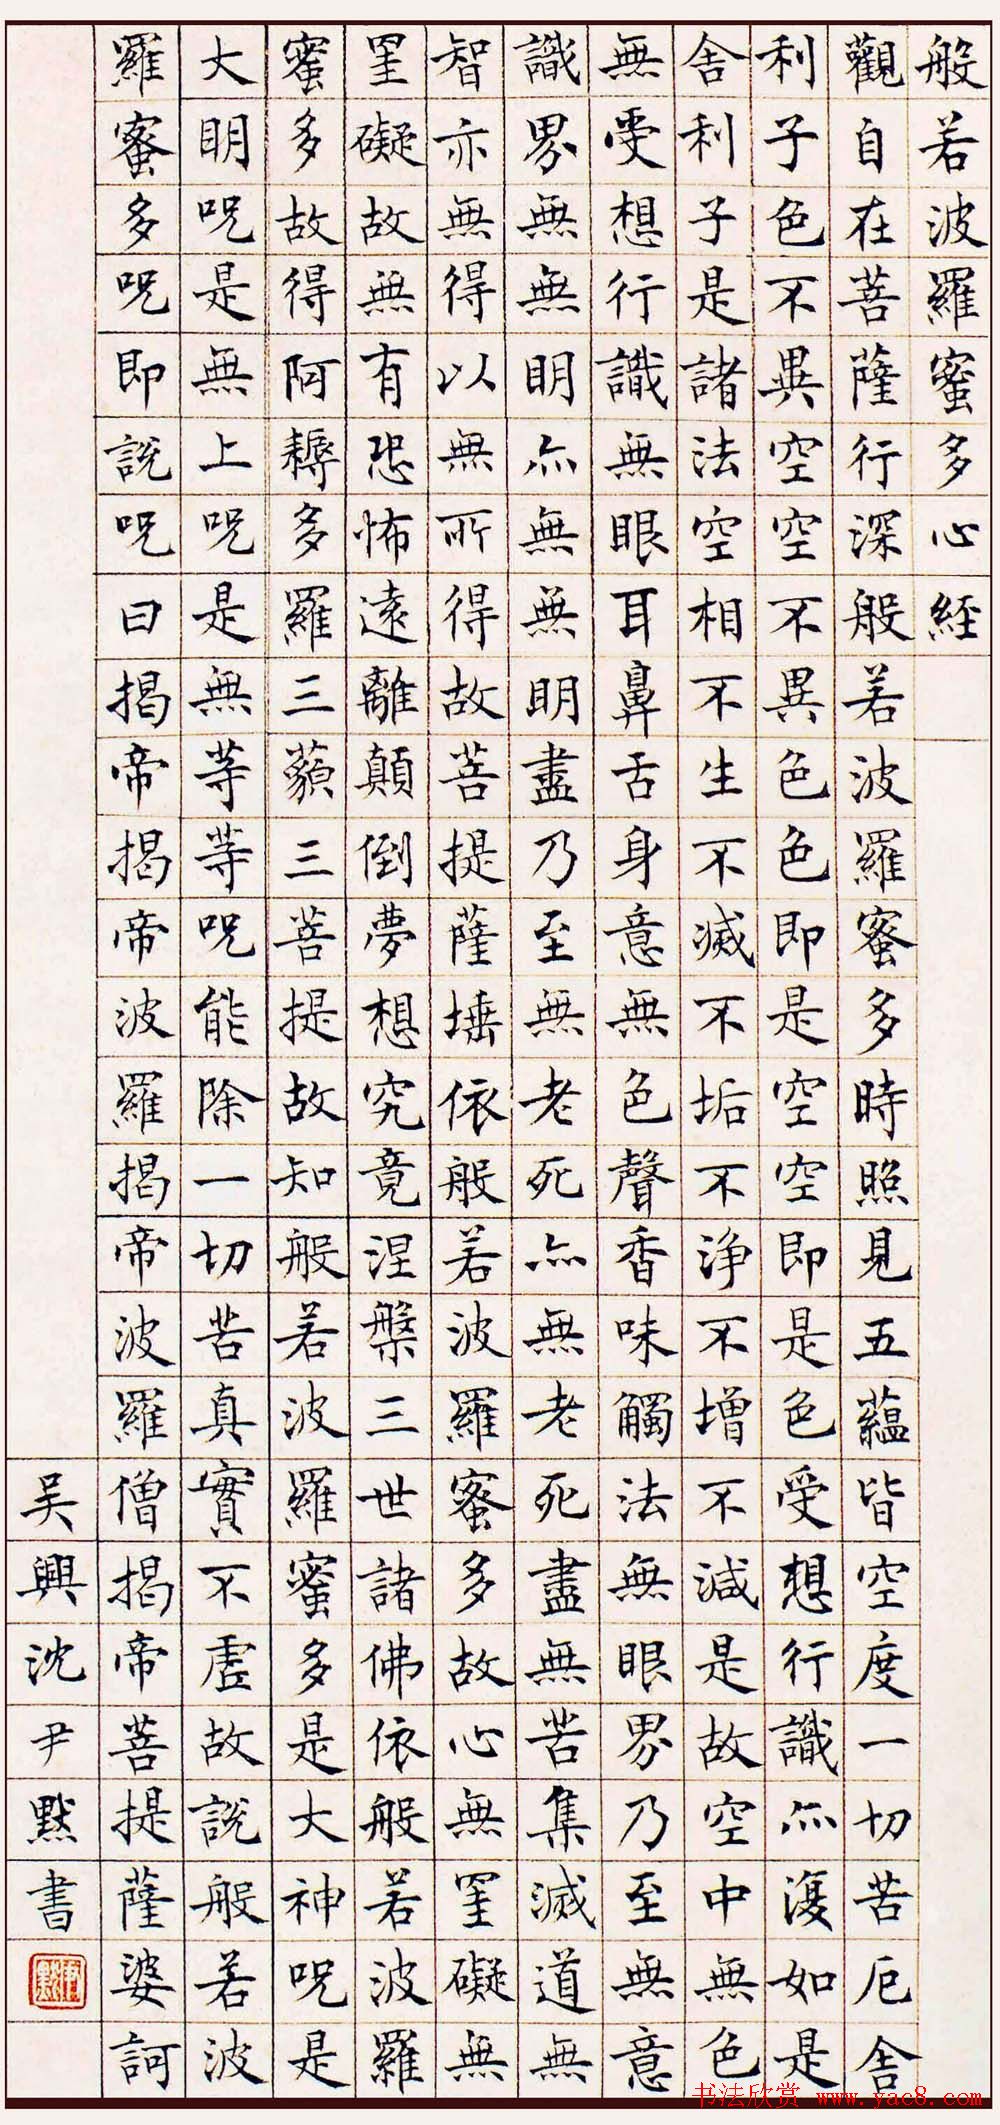 般若波羅蜜多心經
觀自在菩薩行深般若波羅蜜多時照見五蘊皆空度一切苦厄舍
利子色不異空空不異色色即是空空即是色受想行識亦復如是
舍利子是諸法空相不生不滅不垢不淨不增不減是故空中無色
無受想行識無眼耳鼻舌身意無色聲香味觸法無眼界乃至無意
識界無無明亦無無明盡乃至無老死亦無老死盡無苦集滅道無
智亦無得以無所得故菩提薩埵依般若波羅蜜多故心無罣礙無
罣礙故無有恐怖遠離顛倒夢想究竟涅槃三世諸佛依般若波羅
蜜多故得阿耨多羅三藐三菩提故知般若波羅蜜多是大神呪是
大明呪是無上呪是無等等呪能除一切苦真實不虛故說般若波
羅蜜多呪即說呪曰揭帝揭帝波羅揭帝波羅僧揭帝菩提薩婆訶
吳興沈尹默書
书法欣赏 www.yac8.com